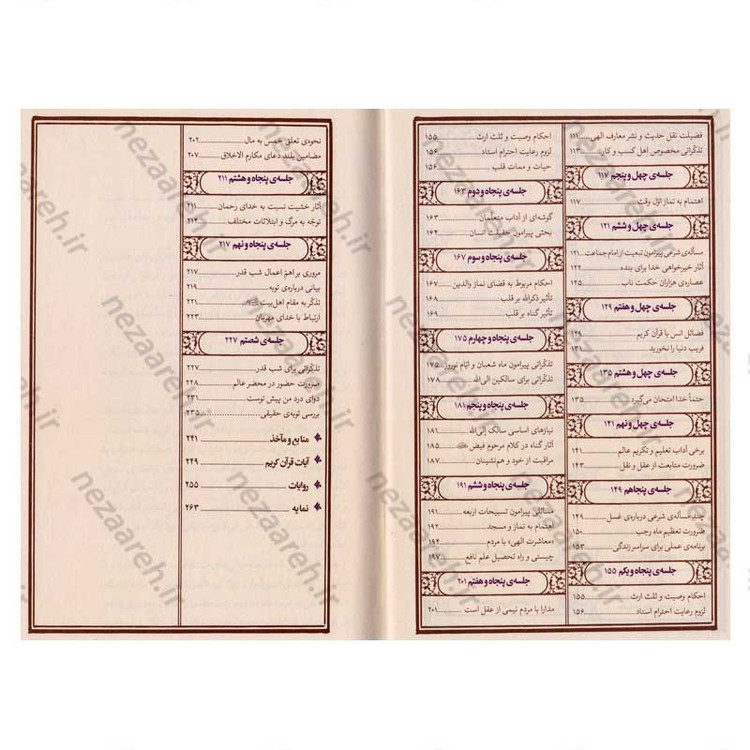 فضیلت نقل حدیث و نشر معارف الهی ۱۱۱
تذکّراتی مخصوص اهل کسب و کار ۱۱۳
جلسه‌ی چهل و پنجم ۱۱۷
اهتمام به نماز اوّل وقت ۱۱۷
جلسه‌ی چهل و ششم ۱۲۱
مسأله‌ی شرعی پیرامون تبعیت از امام جماعت ۱۲۱
آثار خیرخواهی خدا برای بنده ۱۲۲
عصاره‌ی هزاران حکمت ناب ۱۲۵
جلسه‌ی چهل و هفتم ۱۲۹
فضائل انس با قرآن کریم ۱۲۹
فریب دنیا را نخورید ۱۳۱
جلسه‌ی چهل و هشتم ۱۳۵
حتماً خدا امتحان می‌گیرد ۱۳۵
جلسه‌ی چهل و نهم ۱۴۱
برخی آداب تعلیم و تکریم عالم ۱۴۱
ضرورت متابعت از عقل و نقل ۱۴۳
جلسه‌ی پنجاهم ۱۴۹
چند مسأله‌ی شرعی درباره‌ی غسل ۱۴۹
ضرورت تعظیم ماه رجب ۱۵۰
برنامه‌ی عملی برای سراسر زندگی ۱۵۳
جلسه‌ی پنجاه و یکم ۱۵۵
احکام وصیت و ثلث ارث ۱۵۵
لزوم رعایت احترام استاد ۱۵۶
احکام وصیت و ثلث ارث ۱۵۵
لزوم رعایت احترام استاد ۱۵۶
حیات و ممات قلب ۱۵۶
جلسه‌ی پنجاه و دوم ۱۶۳
گوشه‌ای از آداب متعلّمان ۱۶۳
بحثی پیرامون حقیقت انسان ۱۶۴
جلسه‌ی پنجاه و سوم ۱۶۷
احکام مربوط به قضای نماز والدین ۱۶۷
تأثیر ذکرالله بر قلب ۱۶۸
تأثیر گناه بر قلب ۱۶۹
جلسه‌ی پنجاه و چهارم ۱۷۵
تذکّراتی پیرامون ماه شعبان و ایّام نوروز ۱۷۵
تذکّراتی برای سالکین الی‌الله ۱۷۸
جلسه‌ی پنجاه و پنجم ۱۸۱
نیازهای اساسی سالک إلی‌الله ۱۸۱
آثار گناه در کلام مرحوم فیض ۱۸۵
مراقبت از خود و هم‌نشینان ۱۸۷
جلسه‌ی پنجاه و ششم ۱۹۱
مسائلی پیرامون تسبیحات اربعه ۱۹۱
اهتمام به نماز و مسجد ۱۹۲
«معاشرت الهی» با مردم ۱۹۴
چیستی و راه تحصیل علم نافع ۱۹۷
جلسه‌ی پنجاه و هفتم ۲۰۱
مدارا با مردم نیمی از عقل است ۲۰۱
نحوه‌ی تعلق خمس به مال ۲۰۲
مضامین بلند دعای مکارم الاخلاق ۲۰۷
جلسه‌ی پنجاه و هشتم ۲۱۱
آثار خشیت نسبت به خدای رحمان ۲۱۱
توجّه به مرگ و ابتلائات مختلف ۲۱۴
جلسه‌ی پنجاه و نهم ۲۱۷
مروری بر اهمّ اعمال شب قدر ۲۱۷
بیانی درباره‌ی توبه ۲۱۹
تذکّر به مقام اهل‌بیت ۲۲۱
ارتباط با خدای مهربان ۲۲۳
جلسه‌ی شصتم ۲۲۷
تذکّراتی برای شب قدر ۲۲۷
ضرورت حضور در محضر عالم ۲۲۸
دوای درد من پیش توست ۲۳۱
بررسی توبه‌ی حقیقی ۲۳۵
منابع و مآخذ ۲۴۱
آیات قرآن کریم ۲۴۹
روایات ۲۵۵
نمایه ۲۶۳
nezaareh.ir